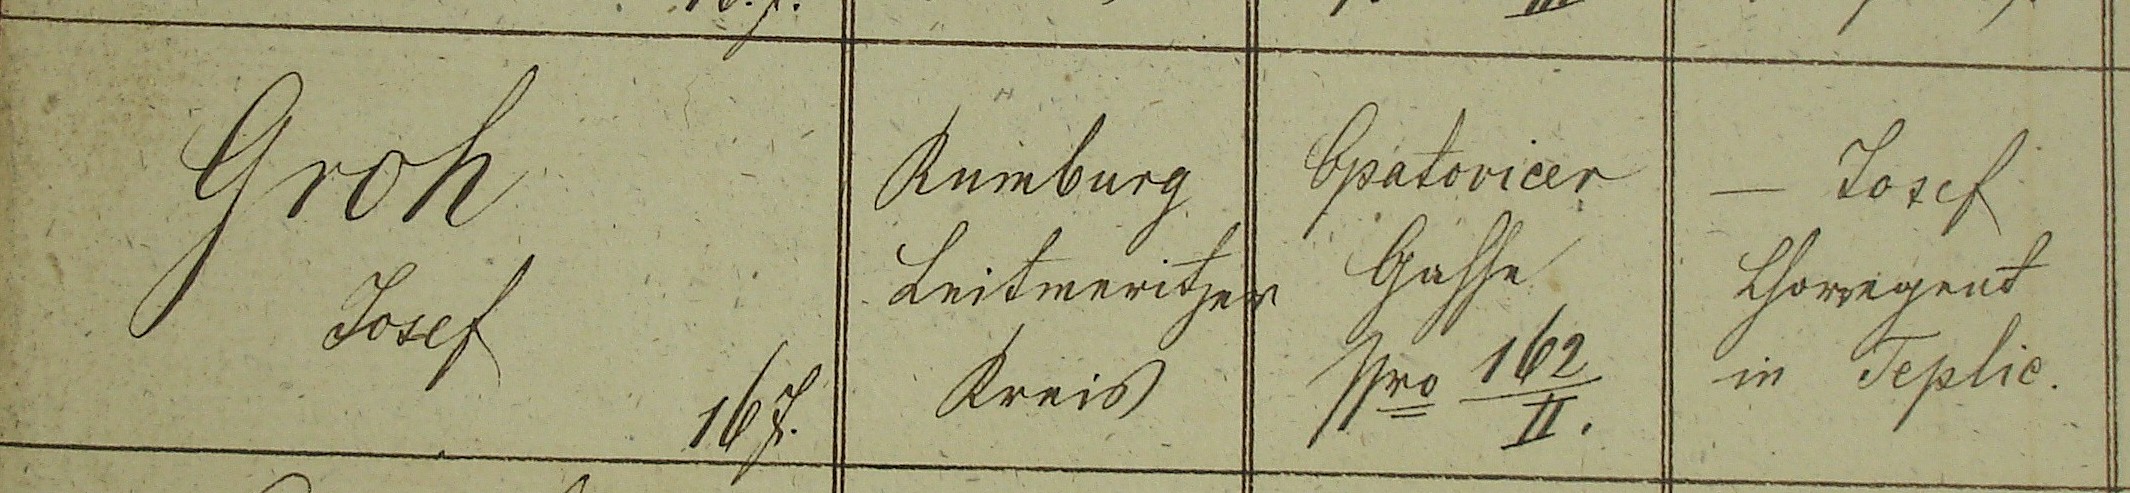 Groh
Josef
16 J.
Rumburg
Leitmeritzer
Kreis
Opatovicer
Gasse
Nro 162/II.
— Josef
Chorregent
in Teplic.